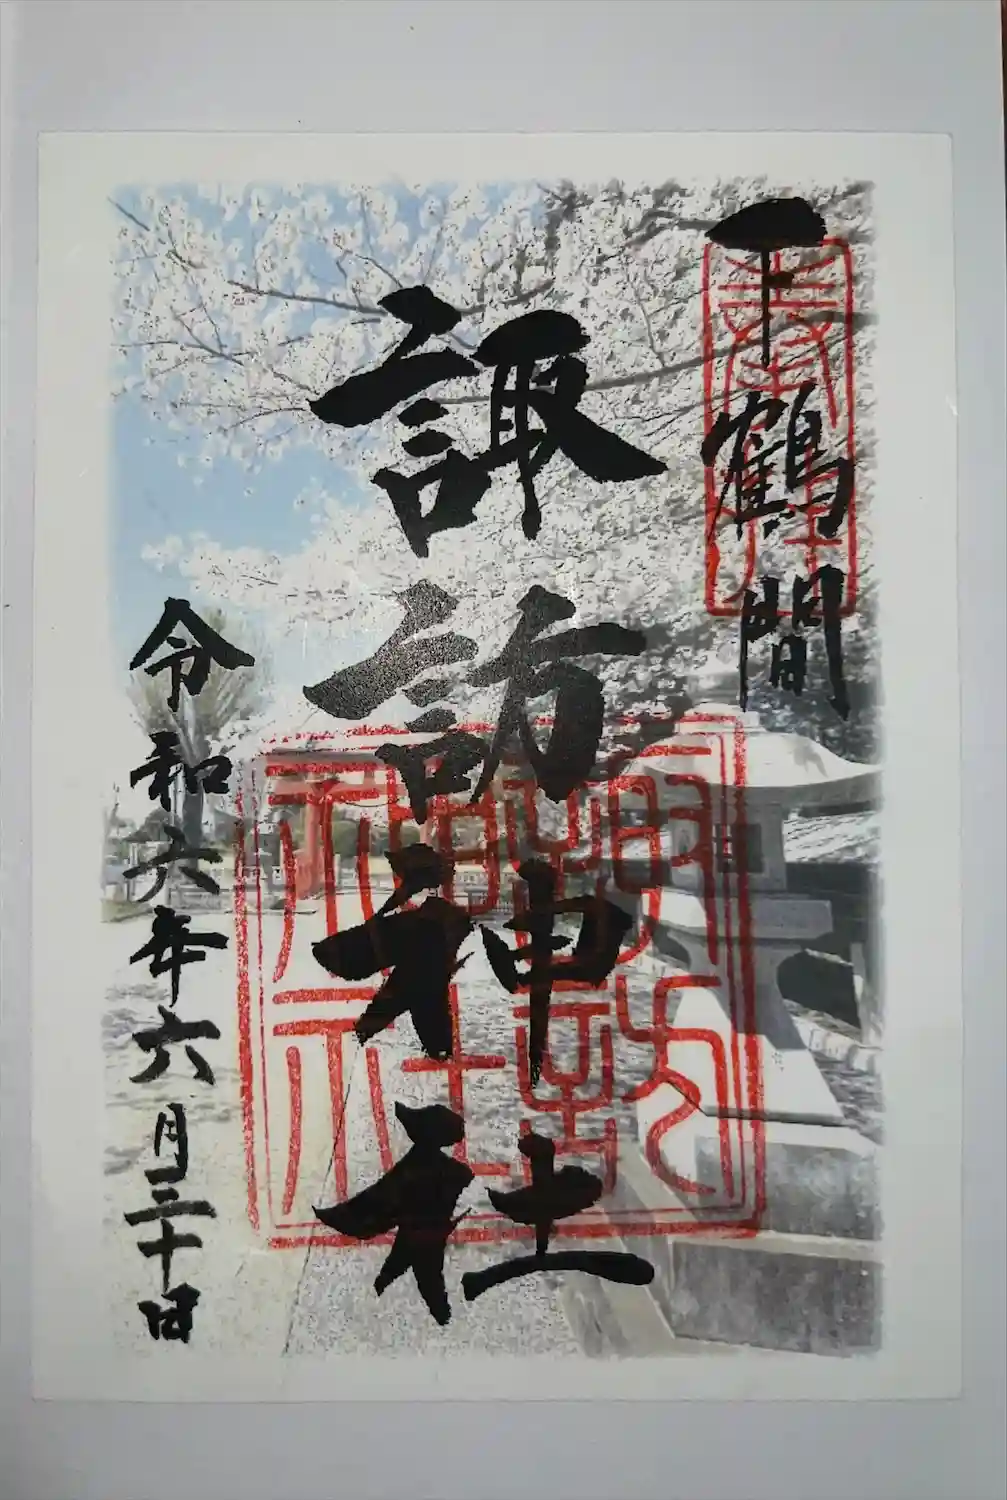 下鶴間
奉拝
諏訪神社
令和六年六月三十日